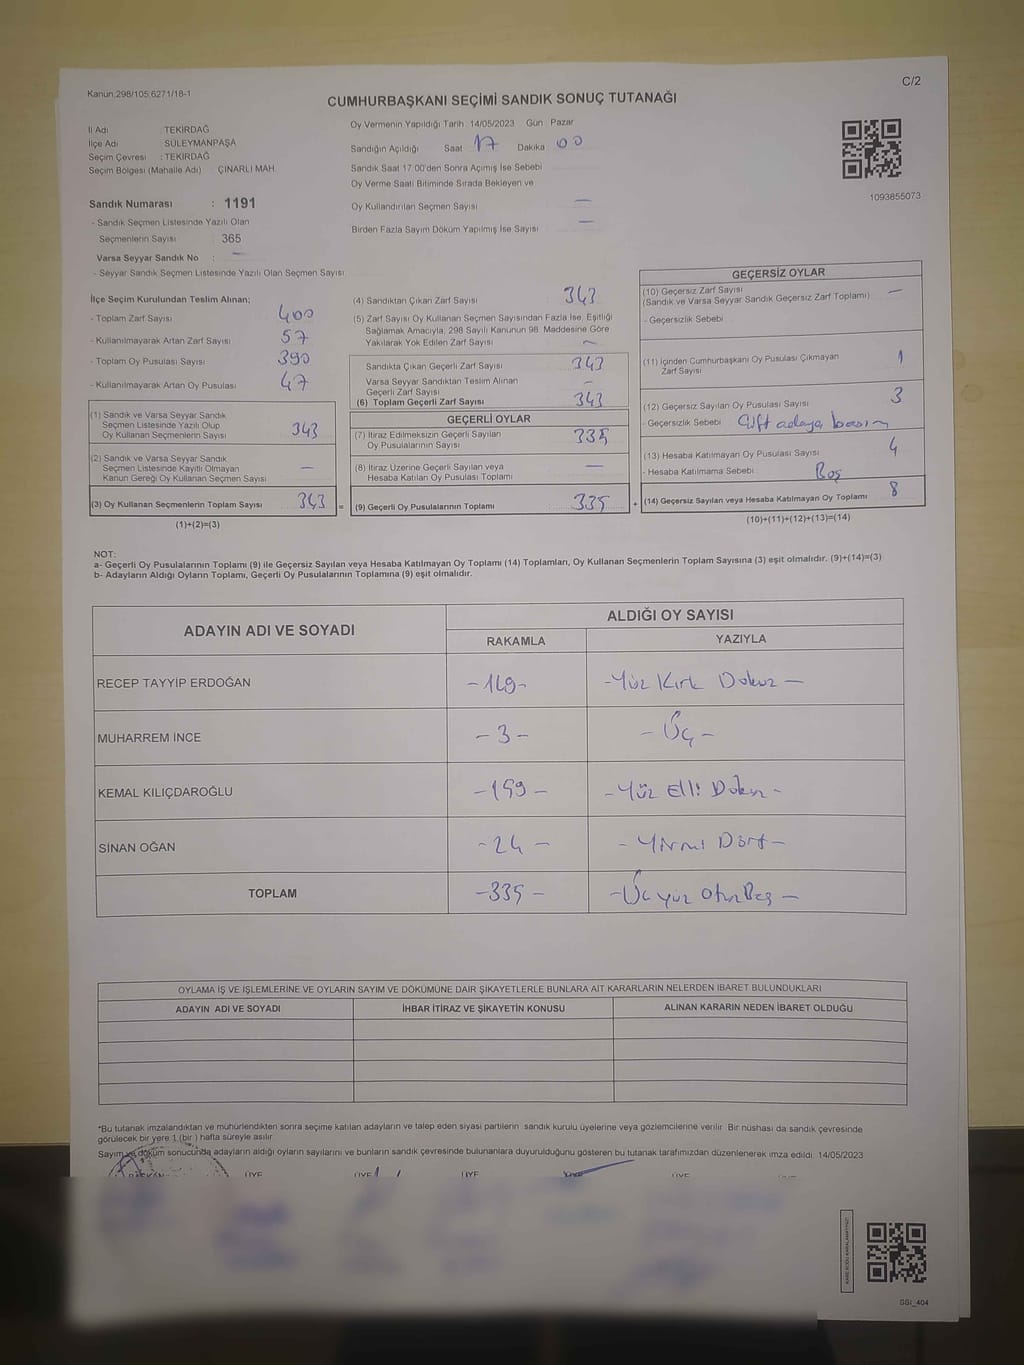 Kanun:298/105,6271/18-1
C/2
CUMHURBAŞKANI SEÇİMİ SANDIK SONUÇ TUTANAĞI
İl Adı : TEKİRDAĞ
İlçe Adı : SÜLEYMANPAŞA
Seçim Çevresi : TEKİRDAĞ
Seçim Bölgesi (Mahalle Adı) : ÇINARLI MAH.
Oy Vermenin Yapıldığı Tarih :14/05/2023 Gün : Pazar
Sandığın Açıldığı Saat 17 Dakika 00
Sandık Saat 17:00'den Sonra Açımış İse Sebebi
Oy Verme Saati Bitiminde Sırada Bekleyen ve
Oy Kullandırılan Seçmen Sayısı —
Birden Fazla Sayım Döküm Yapılmış İse Sayısı —
1093855073
Sandık Numarası : 1191
- Sandık Seçmen Listesinde Yazılı Olan
Seçmenlerin Sayısı : 365
Varsa Seyyar Sandık No : —
- Seyyar Sandık Seçmen Listesinde Yazılı Olan Seçmen Sayısı:
İlçe Seçim Kurulundan Teslim Alınan;
- Toplam Zarf Sayısı 400
- Kullanılmayarak Artan Zarf Sayısı 57
- Toplam Oy Pusulası Sayısı 390
- Kullanılmayarak Artan Oy Pusulası 47
(1) Sandık ve Varsa Seyyar Sandık
Seçmen Listesinde Yazılı Olup
Oy Kullanan Seçmenlerin Sayısı 343
(2) Sandık ve Varsa Seyyar Sandık
Seçmen Listesinde Kayıtlı Olmayan
Kanun Gereği Oy Kullanan Seçmen Sayısı —
(3) Oy Kullanan Seçmenlerin Toplam Sayısı 343 =
(1)+(2)=(3)
(4) Sandıktan Çıkan Zarf Sayısı 343
(5) Zarf Sayısı Oy Kullanan Seçmen Sayısından Fazla İse, Eşitliği
Sağlamak Amacıyla, 298 Sayılı Kanunun 98. Maddesine Göre
Yakılarak Yok Edilen Zarf Sayısı —
Sandıkta Çıkan Geçerli Zarf Sayısı 343
Varsa Seyyar Sandıktan Teslim Alınan
Geçerli Zarf Sayısı —
(6) Toplam Geçerli Zarf Sayısı 343
GEÇERLİ OYLAR
(7) İtiraz Edilmeksizin Geçerli Sayılan
Oy Pusulalarının Sayısı 335
(8) İtiraz Üzerine Geçerli Sayılan veya
Hesaba Katılan Oy Pusulası Toplamı —
(9) Geçerli Oy Pusulalarının Toplamı 335 +
GEÇERSİZ OYLAR
(10) Geçersiz Zarf Sayısı —
(Sandık ve Varsa Seyyar Sandık Geçersiz Zarf Toplamı)
- Geçersizlik Sebebi :
(11) İçinden Cumhurbaşkanı Oy Pusulası Çıkmayan
Zarf Sayısı 1
(12) Geçersiz Sayılan Oy Pusulası Sayısı 3
- Geçersizlik Sebebi : Çift adaya basım
(13) Hesaba Katılmayan Oy Pusulası Sayısı 4
- Hesaba Katılmama Sebebi : Boş
(14) Geçersiz Sayılan veya Hesaba Katılmayan Oy Toplamı 8
(10)+(11)+(12)+(13)=(14)
NOT:
a- Geçerli Oy Pusulalarının Toplamı (9) ile Geçersiz Sayılan veya Hesaba Katılmayan Oy Toplamı (14) Toplamları, Oy Kullanan Seçmenlerin Toplam Sayısına (3) eşit olmalıdır. (9)+(14)=(3)
b- Adayların Aldığı Oyların Toplamı, Geçerli Oy Pusulalarının Toplamına (9) eşit olmalıdır.
ADAYIN ADI VE SOYADI ALDIĞI OY SAYISI
RAKAMLA YAZIYLA
RECEP TAYYİP ERDOĞAN -149- -Yüz Kırk Dokuz-
MUHARREM İNCE -3- -Üç-
KEMAL KILIÇDAROĞLU -159- -Yüz Elli Dokuz-
SİNAN OĞAN -24- -Yirmi Dört-
TOPLAM -335- -Üç yüz Otuz Beş-
OYLAMA İŞ VE İŞLEMLERİNE VE OYLARIN SAYIM VE DÖKÜMÜNE DAİR ŞİKAYETLERLE BUNLARA AİT KARARLARIN NELERDEN İBARET BULUNDUKLARI
ADAYIN ADI VE SOYADI İHBAR İTİRAZ VE ŞİKAYETİN KONUSU ALINAN KARARIN NEDEN İBARET OLDUĞU
*Bu tutanak imzalandıktan ve mühürlendikten sonra seçime katılan adayların ve talep eden siyasi partilerin sandık kurulu üyelerine veya gözlemcilerine verilir. Bir nüshası da sandık çevresinde
görülecek bir yere 1 (bir ) hafta süreyle asılır.
Sayım ve döküm sonucunda adayların aldığı oyların sayılarını ve bunların sandık çevresinde bulunanlara duyurulduğunu gösteren bu tutanak tarafımızdan düzenlenerek imza edildi. 14/05/2023
BAŞKAN ÜYE ÜYE ÜYE ÜYE ÜYE
KARE KODU KARALAMAYINIZ!
SSI_404